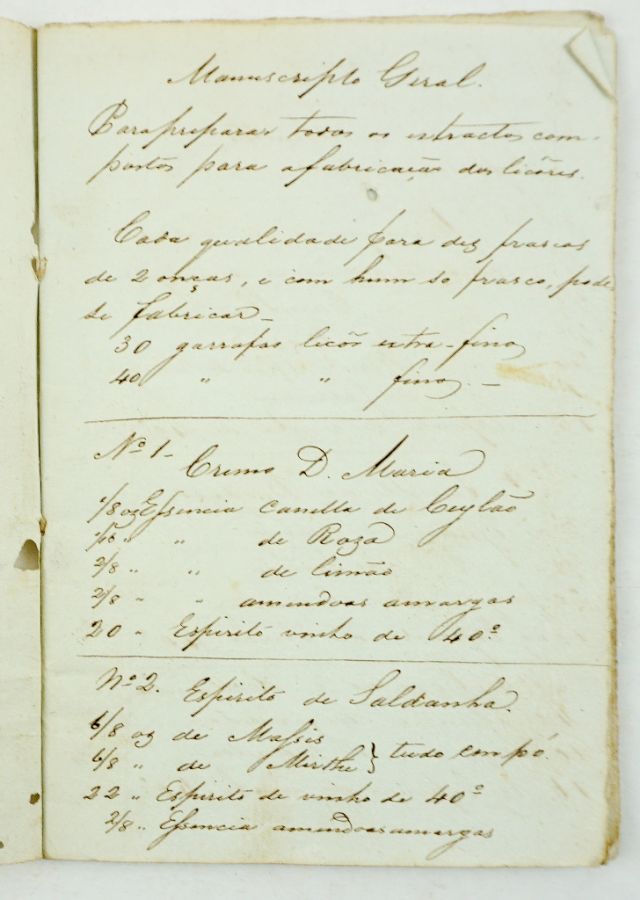 Manuscripto Geral.
Para preparar todos os extractos com-
postos para a fabricação dos licôres.
Cada qualidade para dez frascos
de 2 onças, e com hum só frasco, pode
se fabricar_
30 garrafas licôr extra-fino
40 " " fino. _
Nº 1_
Creme D. Maria
1/8 oz Essencia canella de Ceylão
" " de Roza
2/8 " " de limão
2/8 " " amendoas amargas
20 " Espirito vinho de 40º
Nº 2. Espirito de Saldanha.
6/8 oz de Massis
6/8 " de Mirthe } tudo em pó.
22 " Espirito de vinho de 40º
2/8 " Essencia amendoas amargas